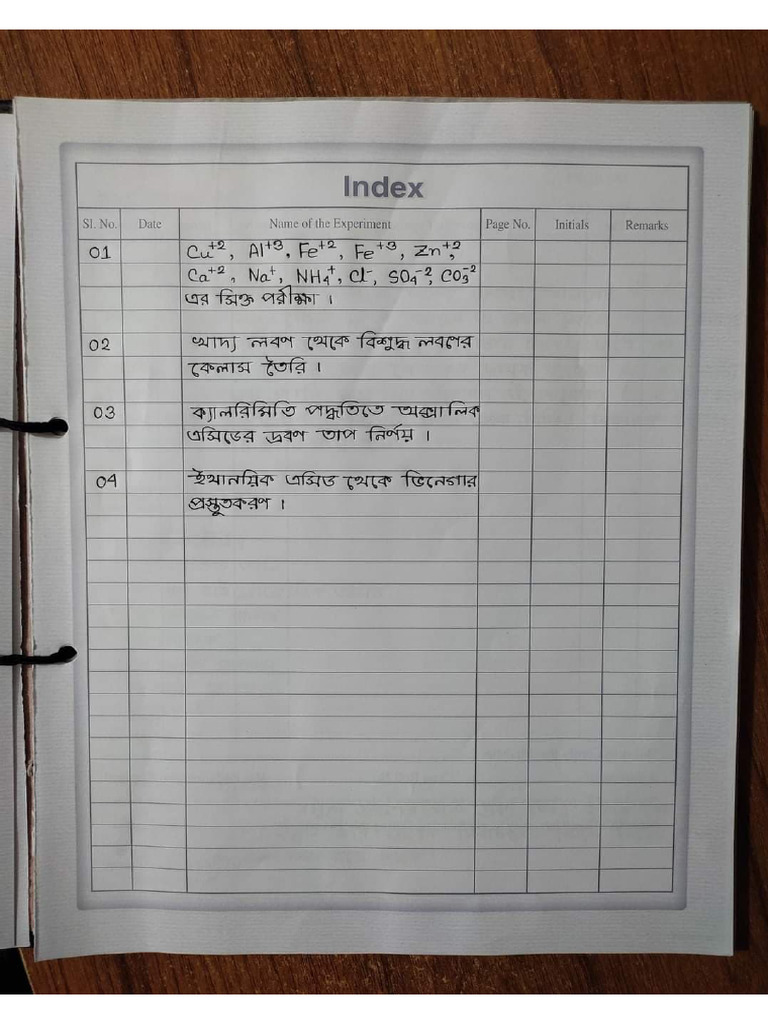 Index
Sl. No. Date Name of the Experiment Page No. Initials Remarks
01 Cu⁺², Al⁺³, Fe⁺², Fe⁺³, Zn⁺²,
Ca⁺², Na⁺, NH₄⁺, Cl⁻, SO₄⁻², CO₃⁻²
এর সিক্ত পরীক্ষা ।
02 খাদ্য লবণ থেকে বিশুদ্ধ লবণের
কেলাস তৈরি ।
03 ক্যালরিমিতি পদ্ধতিতে অক্সালিক
এসিডের দ্রবণ তাপ নির্ণয় ।
04 ইথানয়িক এসিড থেকে ভিনেগার
প্রস্তুতকরণ ।